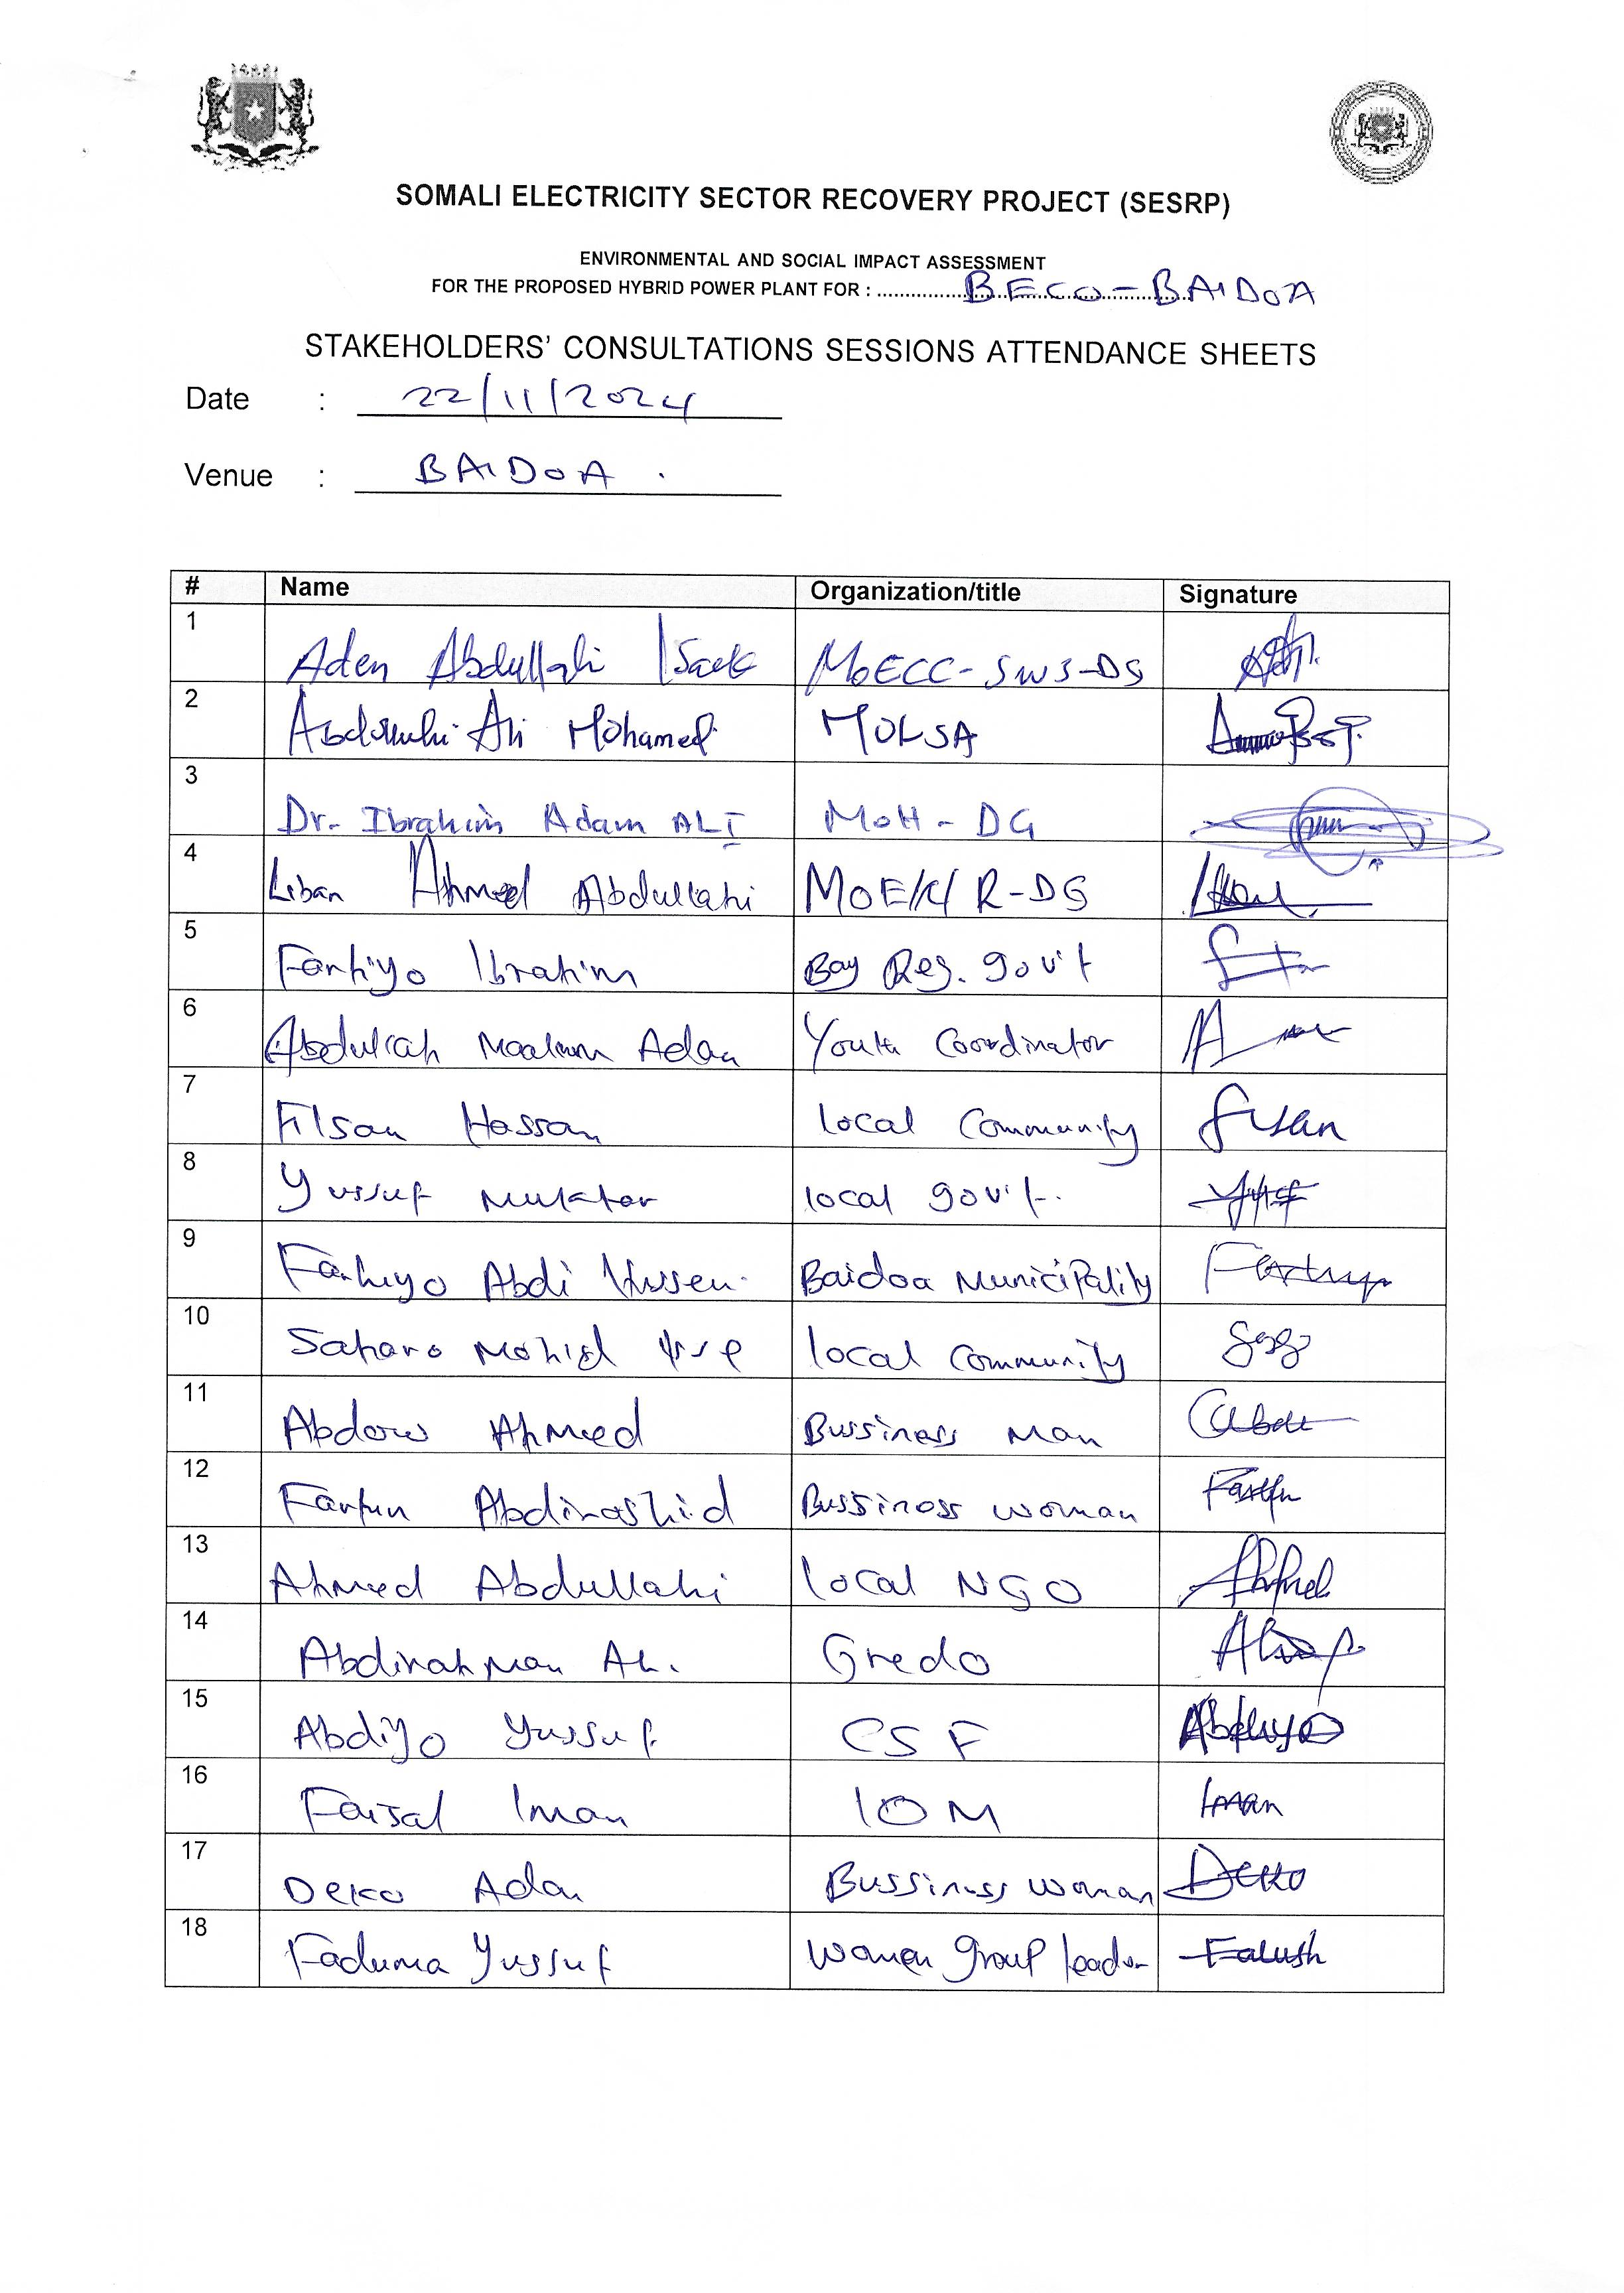 SOMALI ELECTRICITY SECTOR RECOVERY PROJECT (SESRP)
ENVIRONMENTAL AND SOCIAL IMPACT ASSESSMENT
FOR THE PROPOSED HYBRID POWER PLANT FOR : BECO-BAIDOA
STAKEHOLDERS' CONSULTATIONS SESSIONS ATTENDANCE SHEETS
Date : 22/11/2024
Venue : BAIDOA .
# Name Organization/title Signature
1 Aden Abdullahi Isack MoECC-SWS-DG
2 Ali Mohamed MOLSA
3 Dr. Ibrahim Adam ALI MoH - DG
4 Liban Ahmed Abdullahi R-DG
5 Farhiyo Ibrahim Bay Reg. gov't
6 Adan Youth Coordinator
7 Filsan Hassan local Community
8 Yussuf Muktar local gov't.
9 Farhiyo Abdi Baidoa Municipality
10 Saharo local Community
11 Abdow Ahmed Bussiness Man
12 Abdirashid Bussiness woman
13 Ahmed Abdullahi local NGO
14 Abdirahman Ali Gredo
15 Abdiyo Yussuf CSF
16 Faisal Iman IOM Iman
17 Deko Adan Bussiness woman Deko
18 Faduma Yussuf Women Group leader